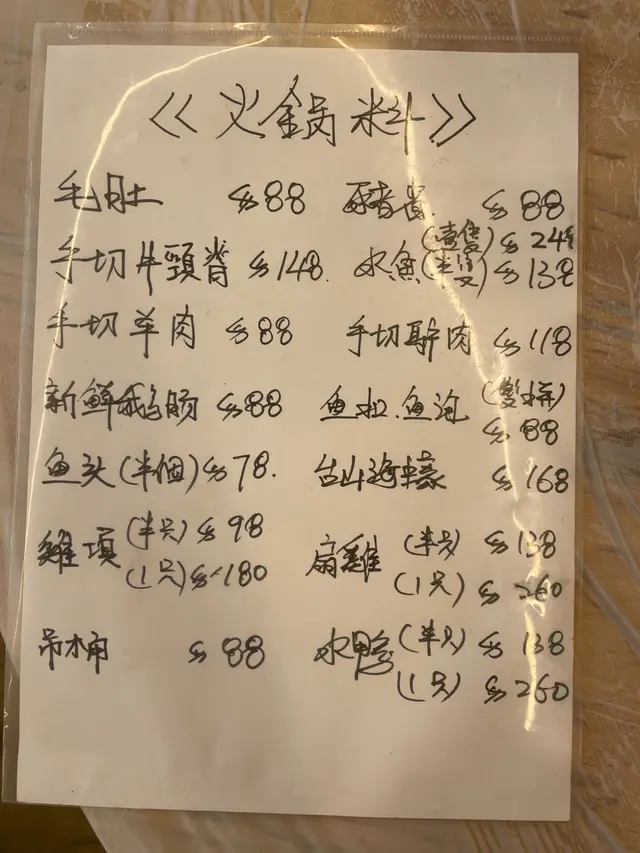 《火锅料》
毛肚 $88
豬 $88
手切牛頸脊 $148.
水魚(壹隻) $248
(半隻) $138
手切羊肉 $88
手切驴肉 $118
新鲜鹅肠 $88
鱼扣.鱼泡 (雙拼)
$88
鱼头(半個) $78.
台山海蠔 $168
雞項 (半只) $98
(1只) $180
扇雞 (半只) $138
(1只) $260
吊桶 $88
水鸭 (半只) $138
(1只) $260